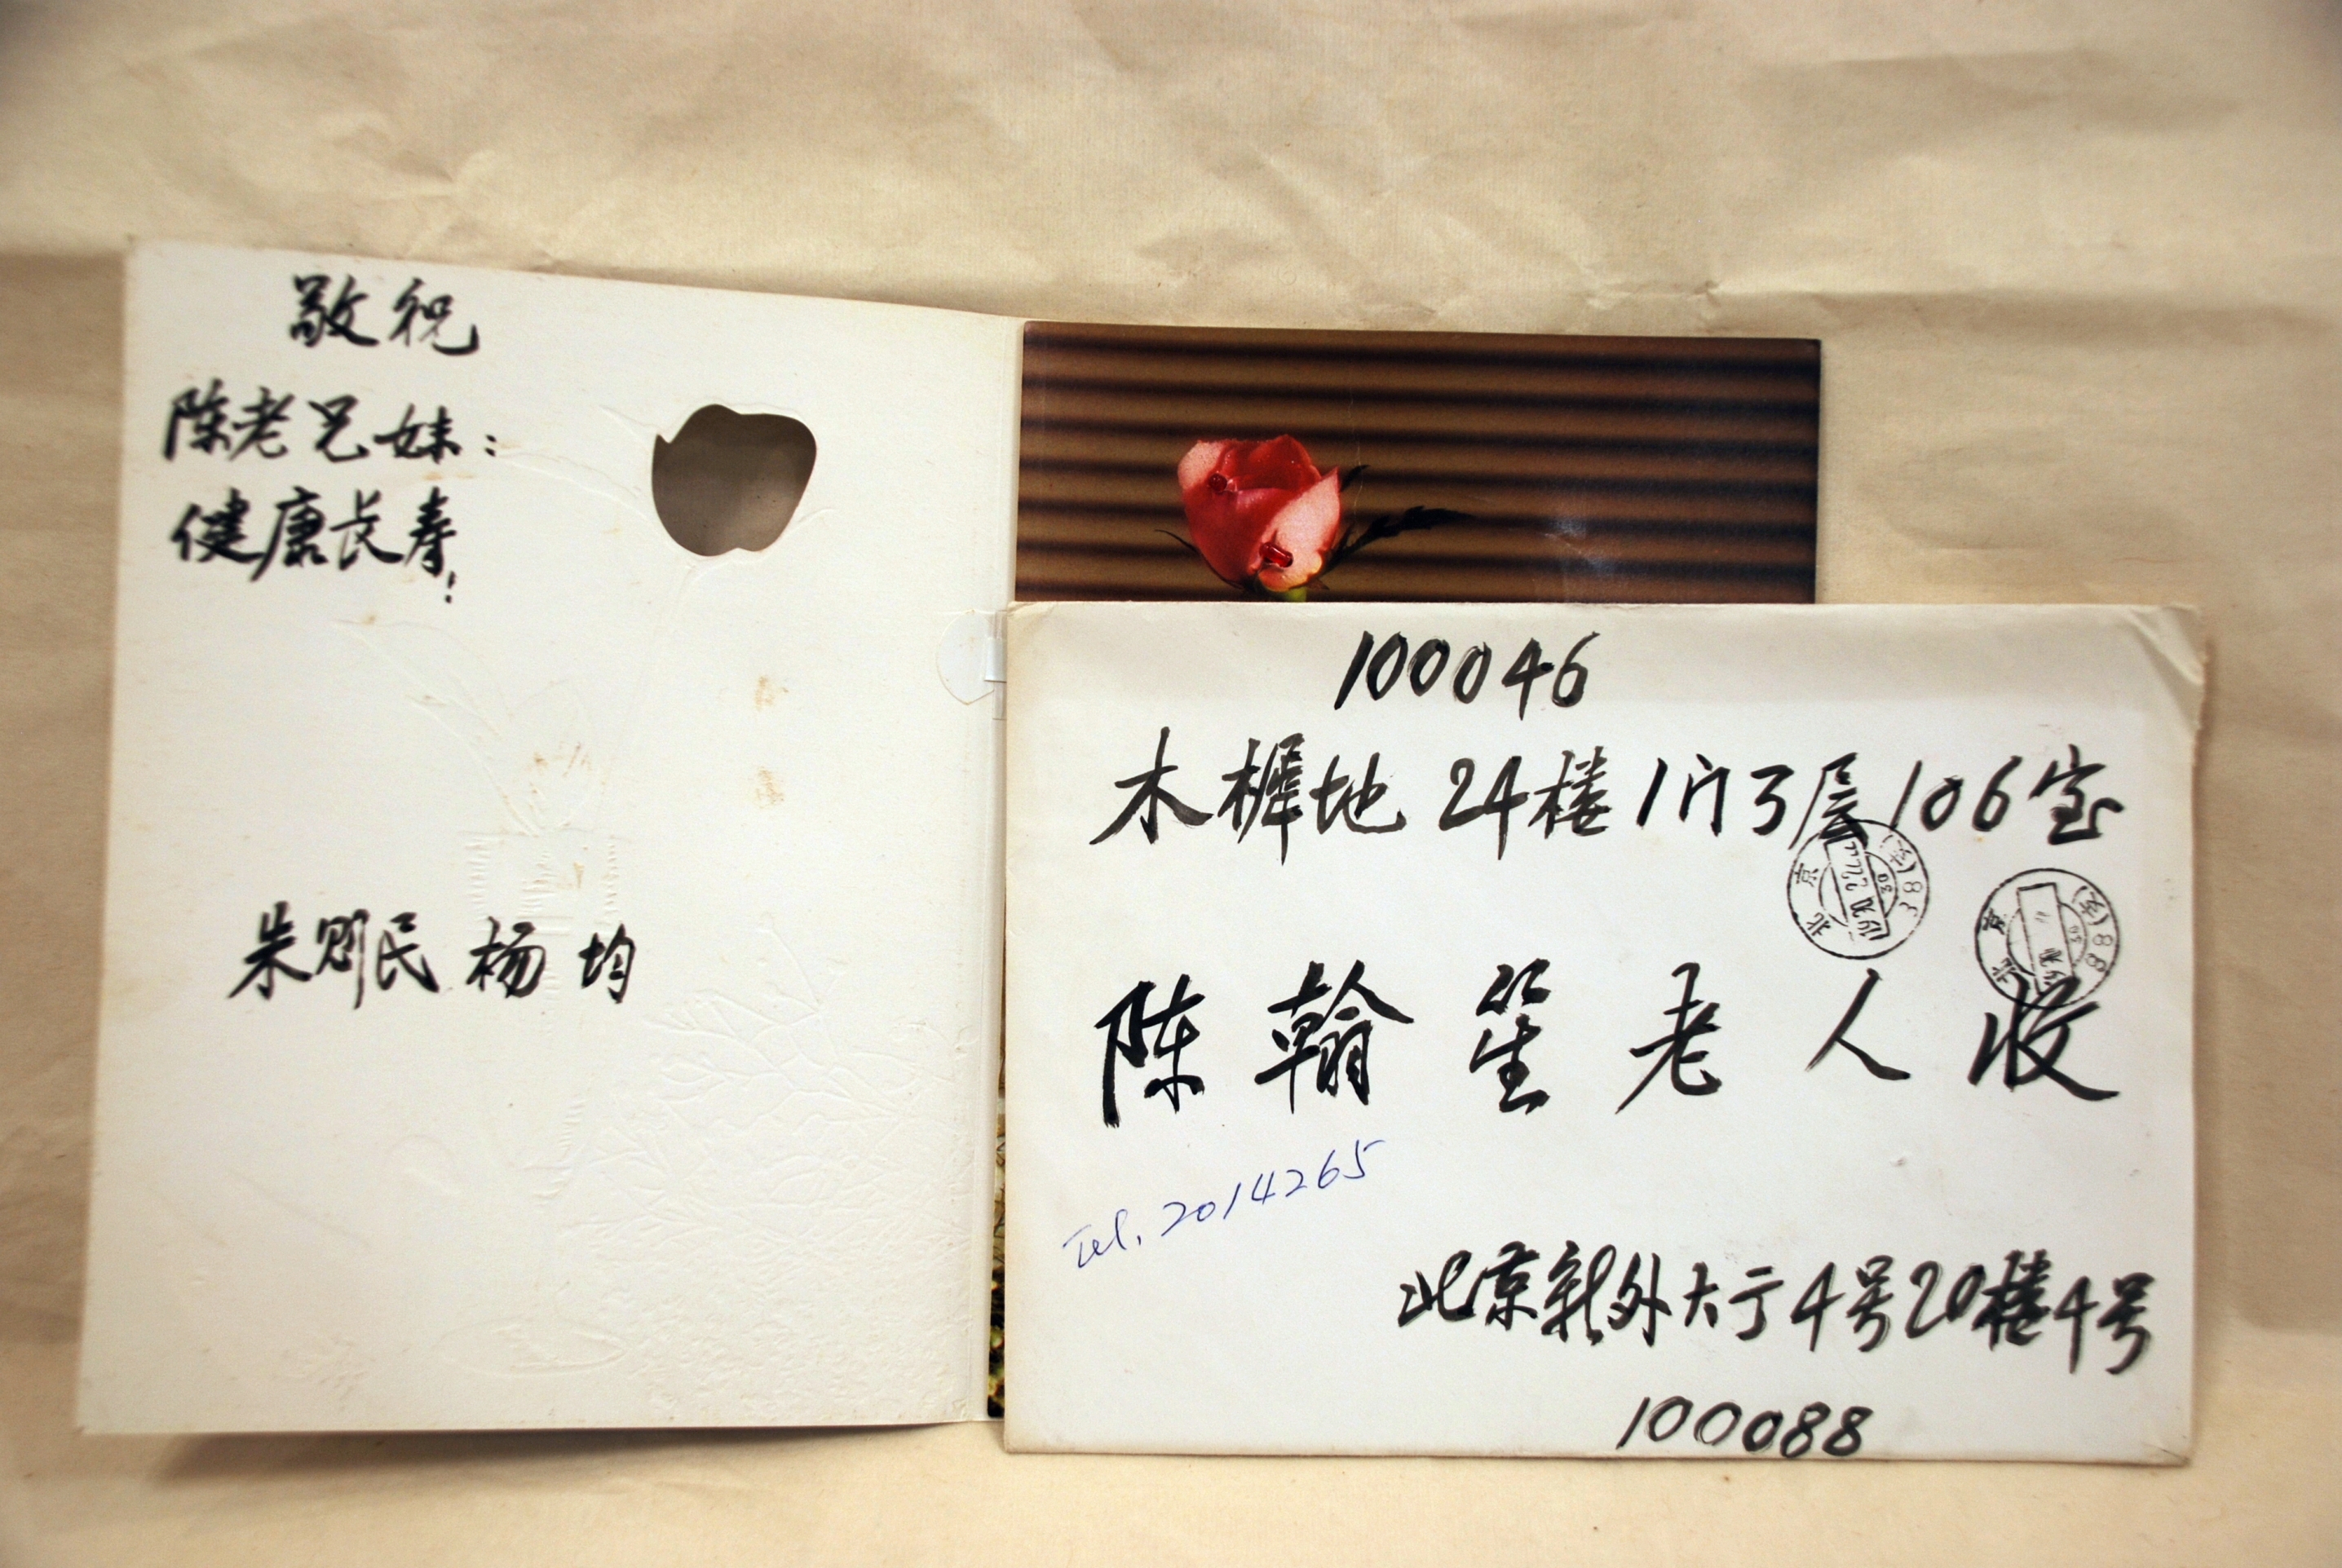 敬祝
陈老兄妹:
健康长寿!
朱则民 杨均
100046
木樨地 24楼1门3层106室
陈翰笙老人收
Tel. 2014265
北京新外大亍4号20楼4号
100088
北京
北京